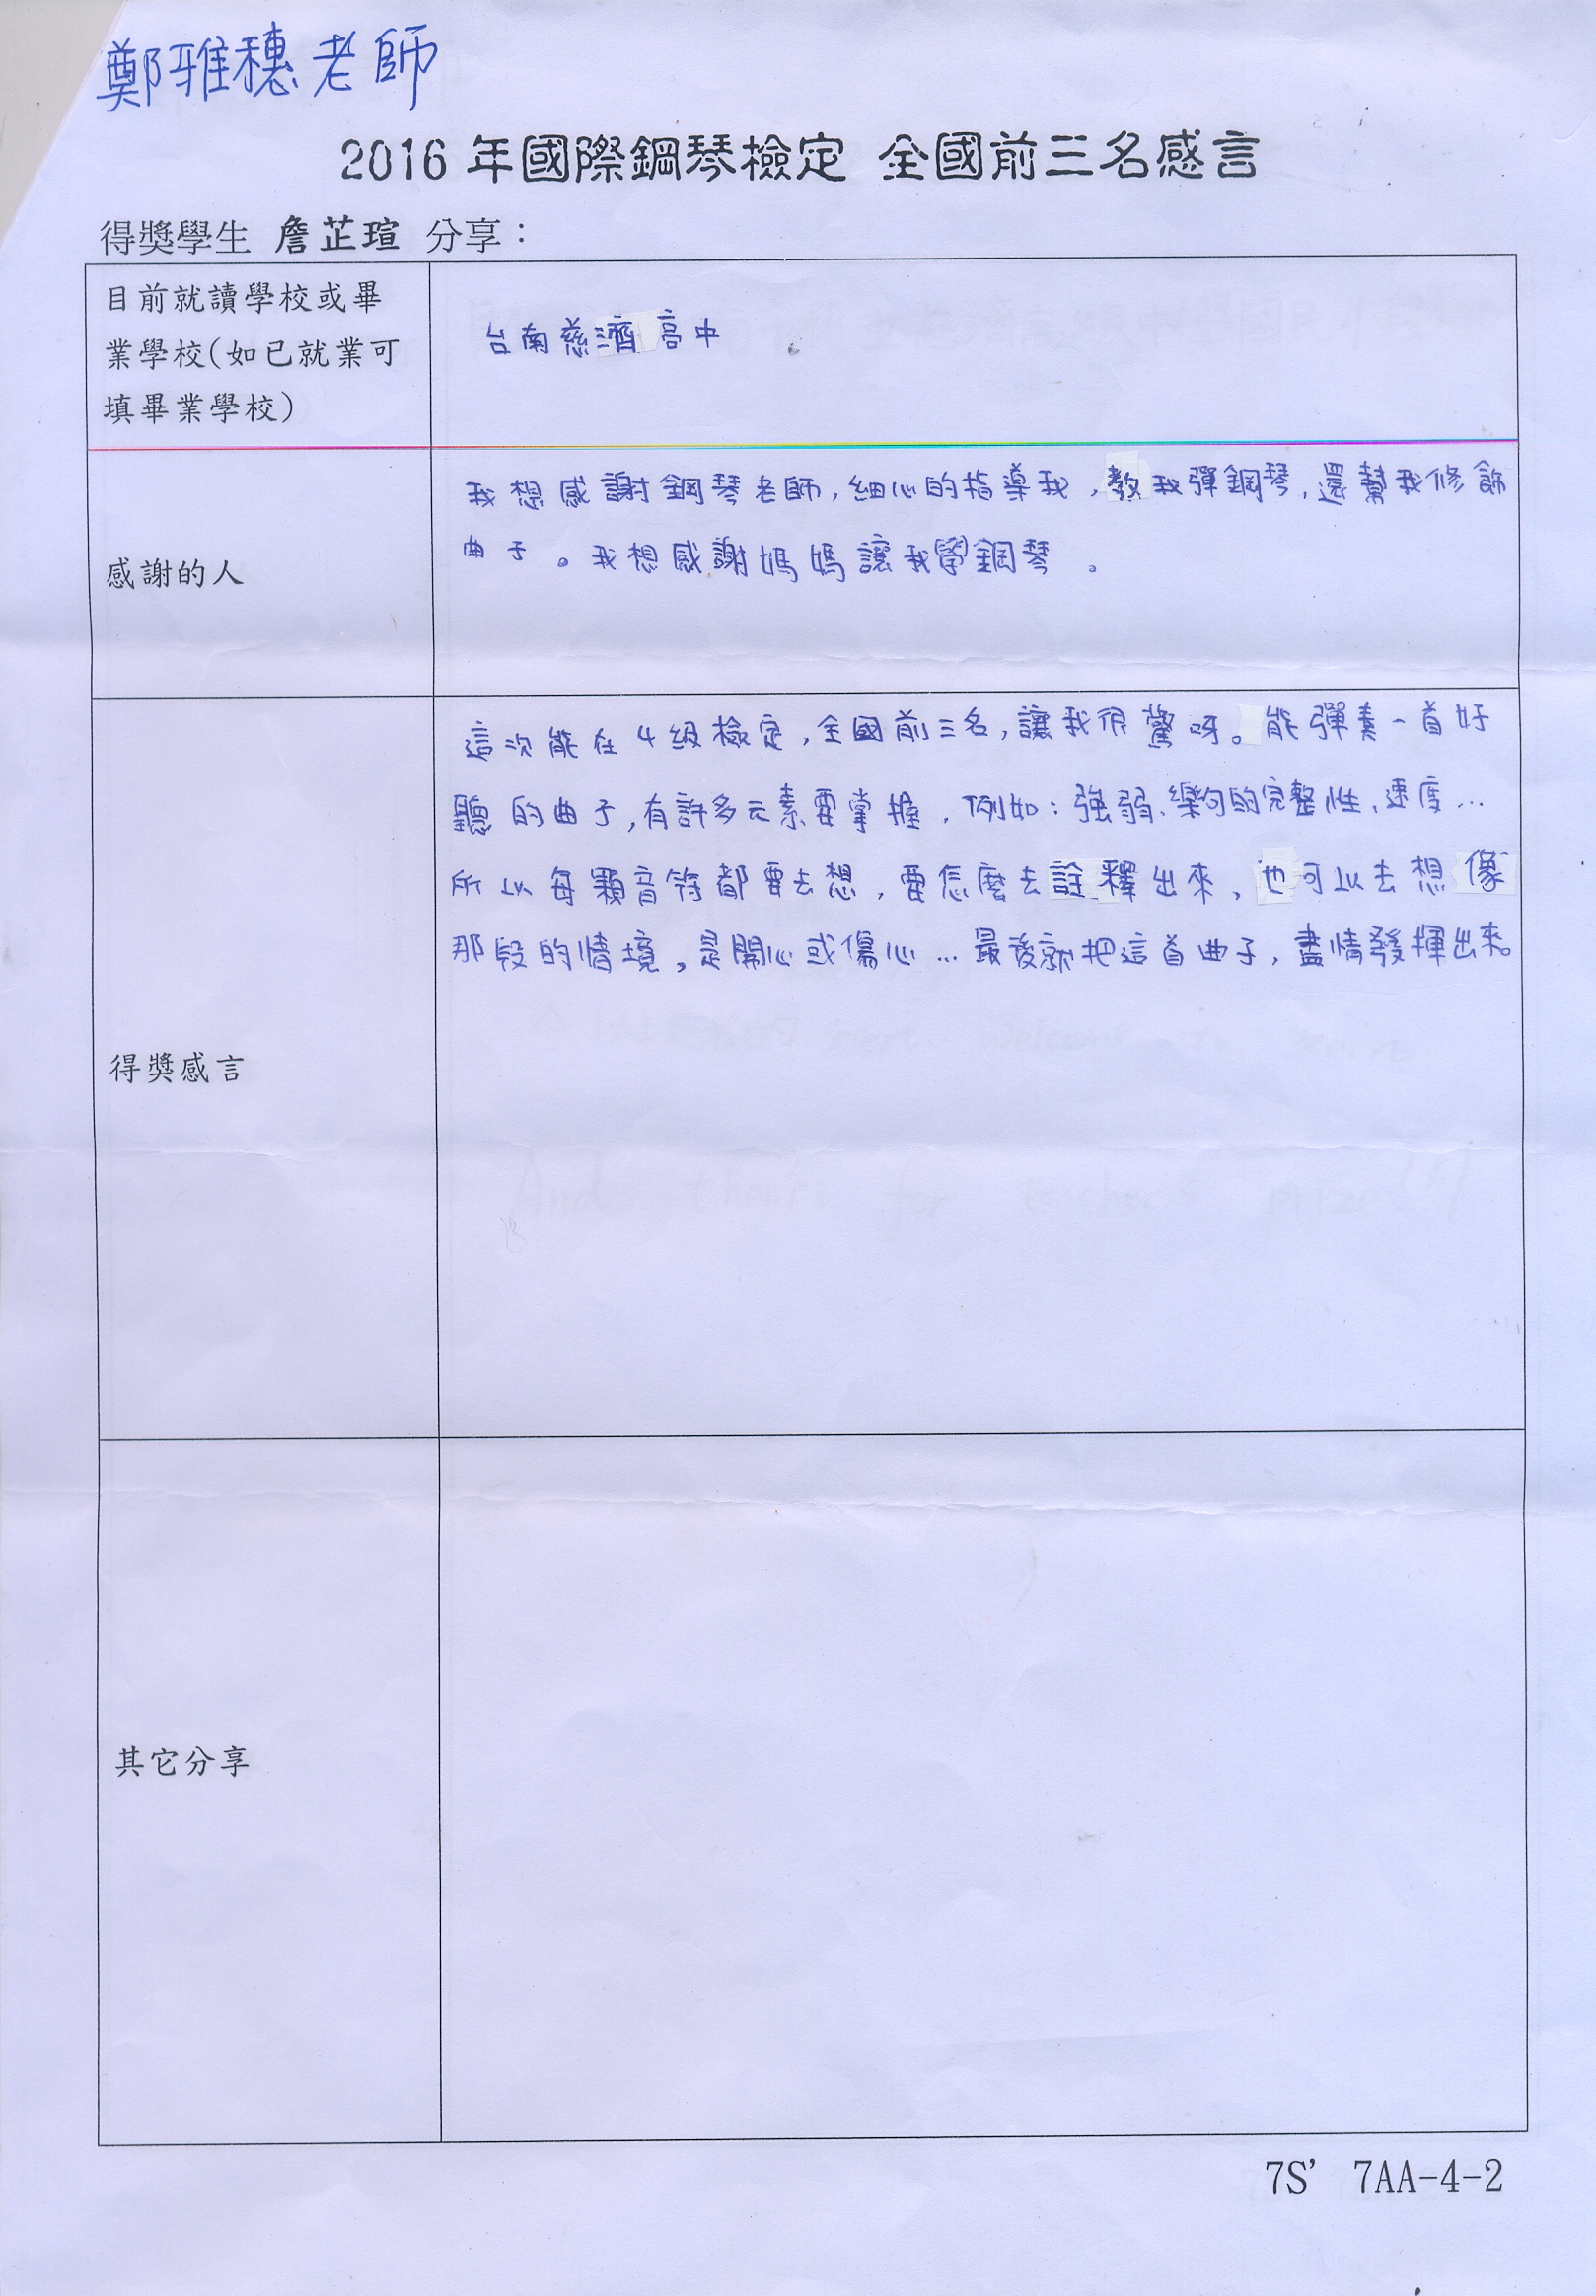 鄭雅穗老師
2016 年國際鋼琴檢定 全國前三名感言
得獎學生 詹芷瑄 分享：
目前就讀學校或畢
業學校(如已就業可
填畢業學校)
台南慈濟高中
感謝的人
我想感謝鋼琴老師,細心的指導我,教我彈鋼琴,還幫我修飾
曲子。我想感謝媽媽讓我學鋼琴。
得獎感言
這次能在4級檢定,全國前三名,讓我很驚呀。能彈奏一首好
聽的曲子,有許多元素要掌握,例如:強弱、樂句的完整性、速度…
所以每顆音符都要去想,要怎麼去詮釋出來,也可以去想像
那段的情境,是開心或傷心…最後就把這首曲子,盡情發揮出來。
其它分享
7S’ 7AA-4-2